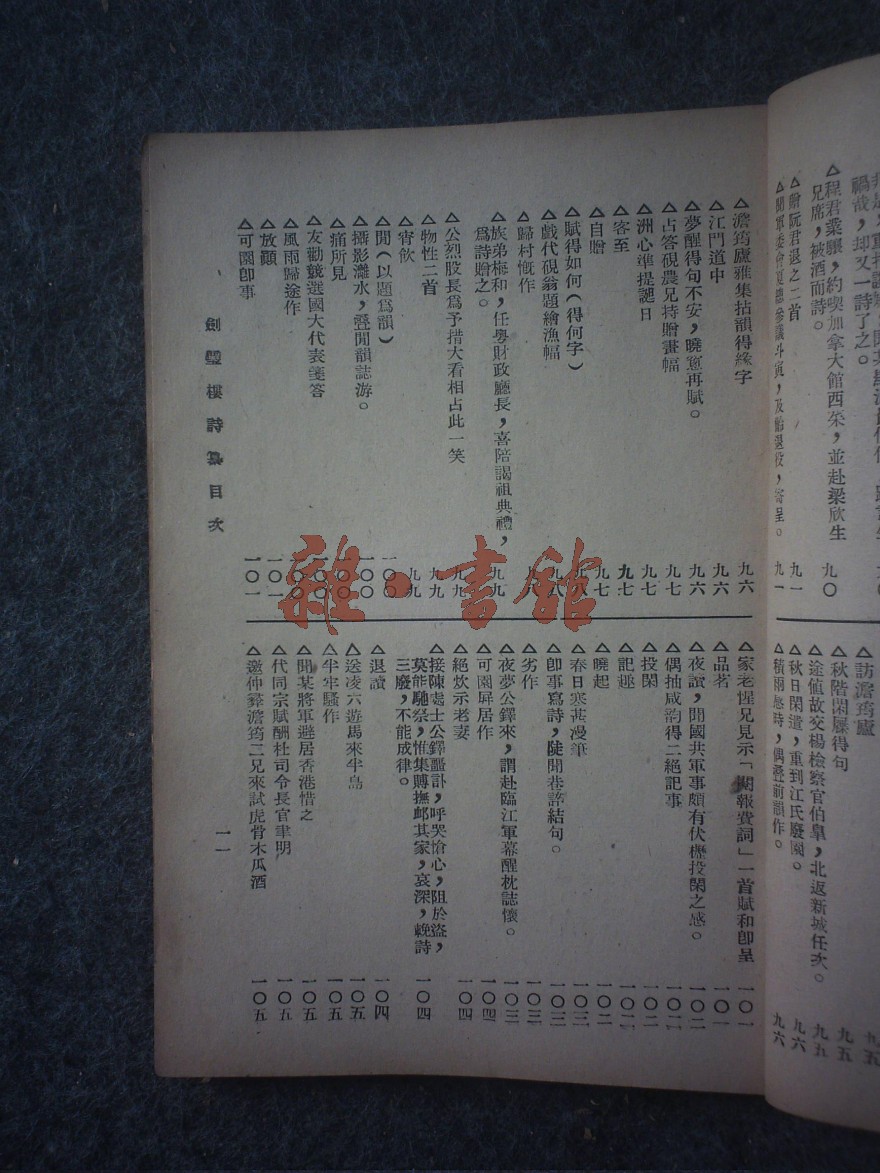 兄席，被酒而詩。
△程君業驟，約喫加拿大館西菜，並赴梁欣生
九〇
△贈阮君退之二首
九一
九一
△訪澹筠廬
九五
△秋階閑屧得句
九五
△途値故交楊檢察官伯臯，北返新城任次。
九五
△秋日閑遣，重到江氏廢園。
九六
△積雨愁時，偶疊前韻作。
九六
△澹筠廬雅集拈韻得緣字
九六
△江門道中
九六
△夢醒得句不安，曉窻再賦。
九六
△占答硯農兄特贈畫幅
九七
△洲心準提誕日
九七
△客至
九七
△自贈
九七
△賦得如何（得何字）
九八
△戲代硯翁題繪漁幅
九八
△歸村慨作
九八
△族弟梅和，任粤財政廳長，喜陪謁祖典禮，
爲詩贈之。
九九
△公烈股長爲予措大看相占此一笑
九九
△物性二首
九九
△宵飲
九九
△閒（以題爲韻）
一〇〇
△攝影灕水，疊閒韻誌游。
一〇〇
△痛所見
一〇〇
△友勸競選國大代表箋答
一〇〇
△風雨歸途作
一〇〇
△放顚
一〇一
△可園卽事
一〇一
△家老惺兄見示「閱報費詞」一首賦和卽呈
一〇一
△品茗
一〇一
△夜讀，聞國共軍事頗有伏櫪投閑之感。
一〇二
△偶抽咸韵得二絕記事
一〇二
△投閑
一〇二
△記趣
一〇二
△曉起
一〇二
△春日寒甚漫筆
一〇三
△卽事寫詩，陡聞巷諺結句。
一〇三
△劣作
一〇三
△夜夢公鐸來，謂赴臨江軍幕醒枕誌懷。
一〇三
△可園屛居作
一〇四
△絕炊示老妻
一〇四
△接陳處士公鐸噩訃，呼哭愴心，阻於盜，
莫能馳祭，惟集賻撫邮其家，哀深，輓詩
三廢，不能成律。
一〇四
△退讀
一〇四
△送凌六遊馬來半島
一〇五
△牢騷作
一〇五
△聞某將軍避居香港惜之
一〇五
△代同宗賦酬杜司令長官聿明
一〇五
△邀仲彝澹筠二兄來試虎骨木瓜酒
一〇五
劍璧樓詩纂目次
一一
雜·書館